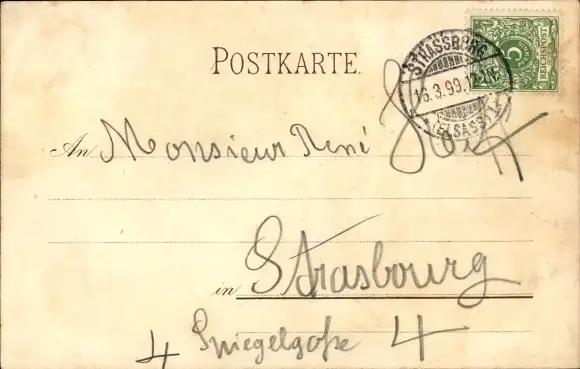 POSTKARTE.
REICHSPOST
STRASSBURG
16.3.99.12-1N.
(ELSASS)
An Monsieur René
in Strasbourg
4 Spiegelgaße 4